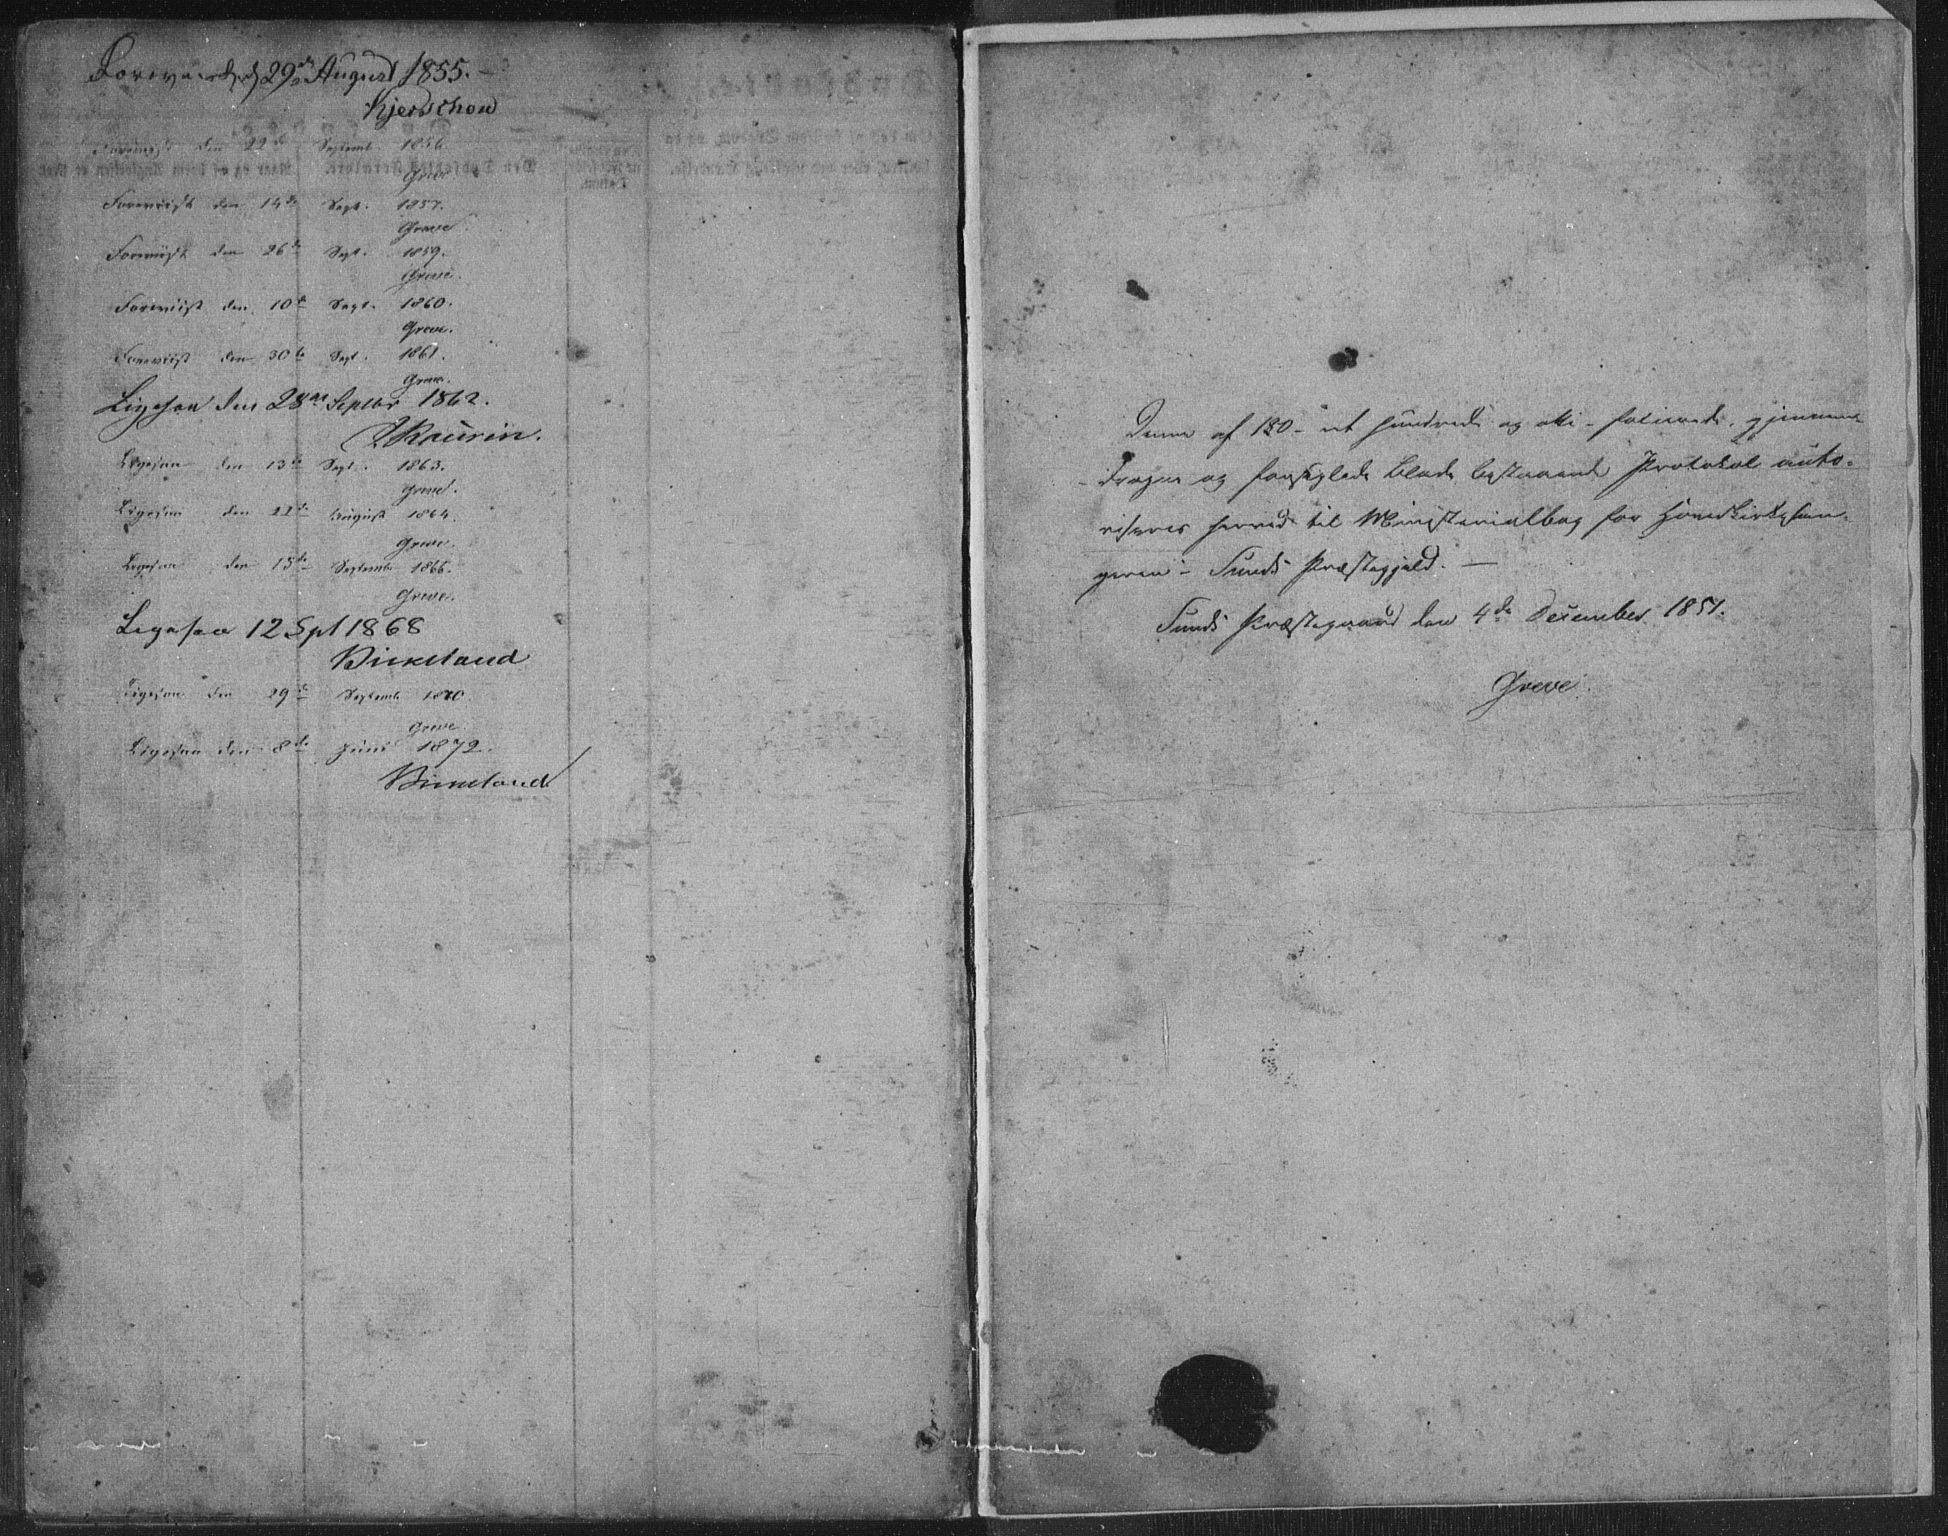 Foreviist d. 29de August 1855.
Kjerschow
Foreviist den 22de Septemb. 1856.
Greve
Foreviist den 14de Sept. 1857.
Greve.
Foreviist den 26de Sept. 1859.
Greve.
Foreviist den 10de Sept. 1860.
Greve.
Foreviist den 30te Sept. 1861.
Greve.
Ligesaa den 28de Septbr 1862.
Kaurin.
Ligesaa den 13de Sept. 1863.
Greve.
Ligesaa den 22de August 1864.
Greve.
Ligesaa den 15de Septemb. 1866.
Greve.
Ligesaa 12 Spt 1868
Birkeland
Ligesaa den 29de Septemb. 1870.
Greve
Ligesaa den 8de Juni 1872.
Birkeland
Denne af 180 - et hundrede og otti - folierede, gjennem-
dragne og forseglede Blade bestaaende Protokol auto-
riseres herved til Ministerialbog for Hovedkirkesog-
nene i Sunds Præstegjeld. —
Sunds Præstegaard den 4de December 1851.
Greve.